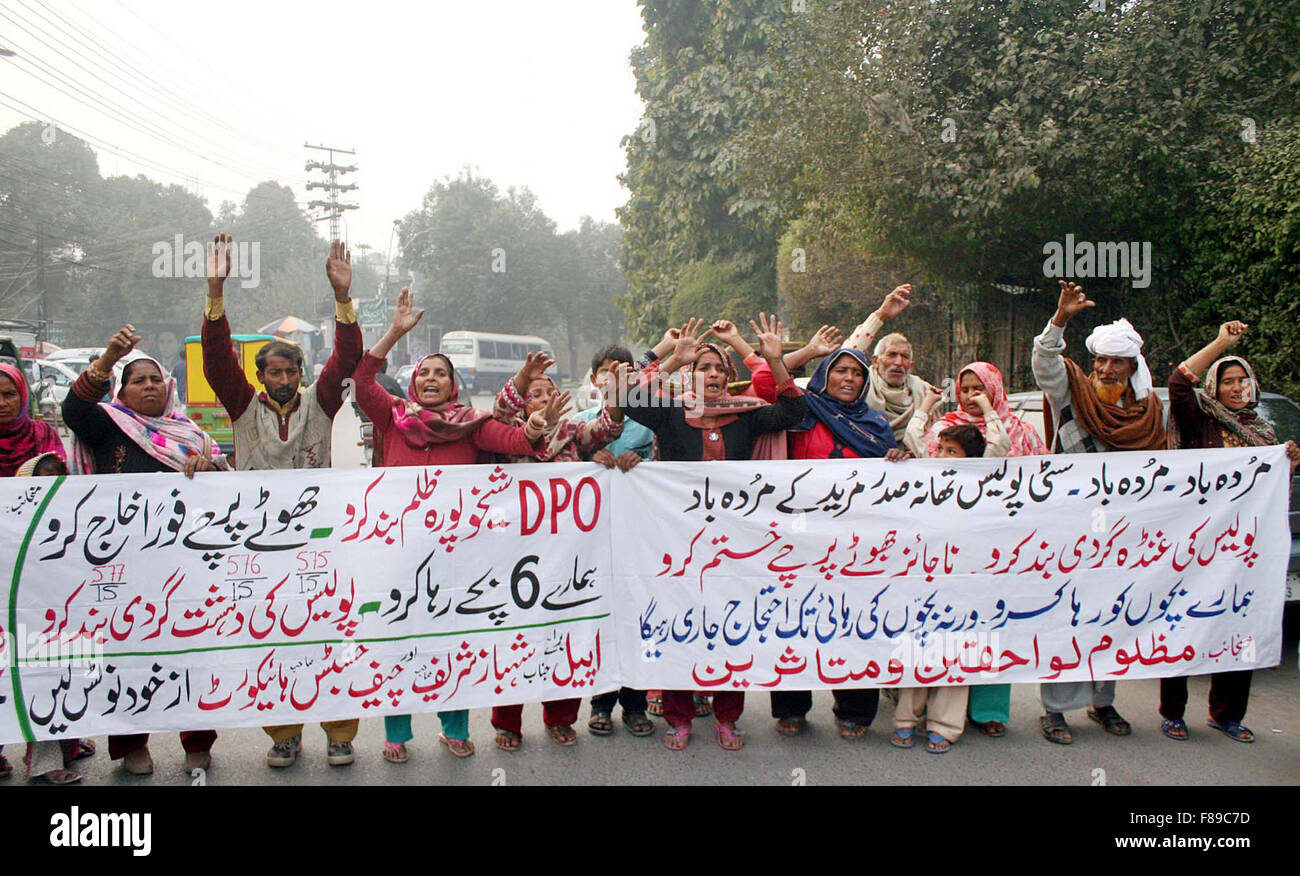 مُردہ باد ۔ مُردہ باد ۔ سٹی پولیس تھانہ صدر مُرید کے مُردہ باد
پولیس کی غنڈہ گردی بند کرو ۔ ناجائز جھوٹے پرچے ختم کرو
ہمارے بچوں کو رہا کرو ۔ ورنہ بچّوں کی رہائی تک احتجاج جاری رہیگا
منجانب: مظلوم لواحقین و متاثرین
DPO شیخوپورہ ظلم بند کرو ۔ جھوٹے پرچے فوراً خارج کرو
ہمارے 6 بچے رہا کرو ۔ پولیس کی دہشت گردی بند کرو
575/15 576/15 577/15
اپیل جناب شہباز شریف صاحب اور چیف جسٹس صاحب ہائیکورٹ از خود نوٹس لیں
منجانب:
alamy
Image ID: F89C7D
www.alamy.com